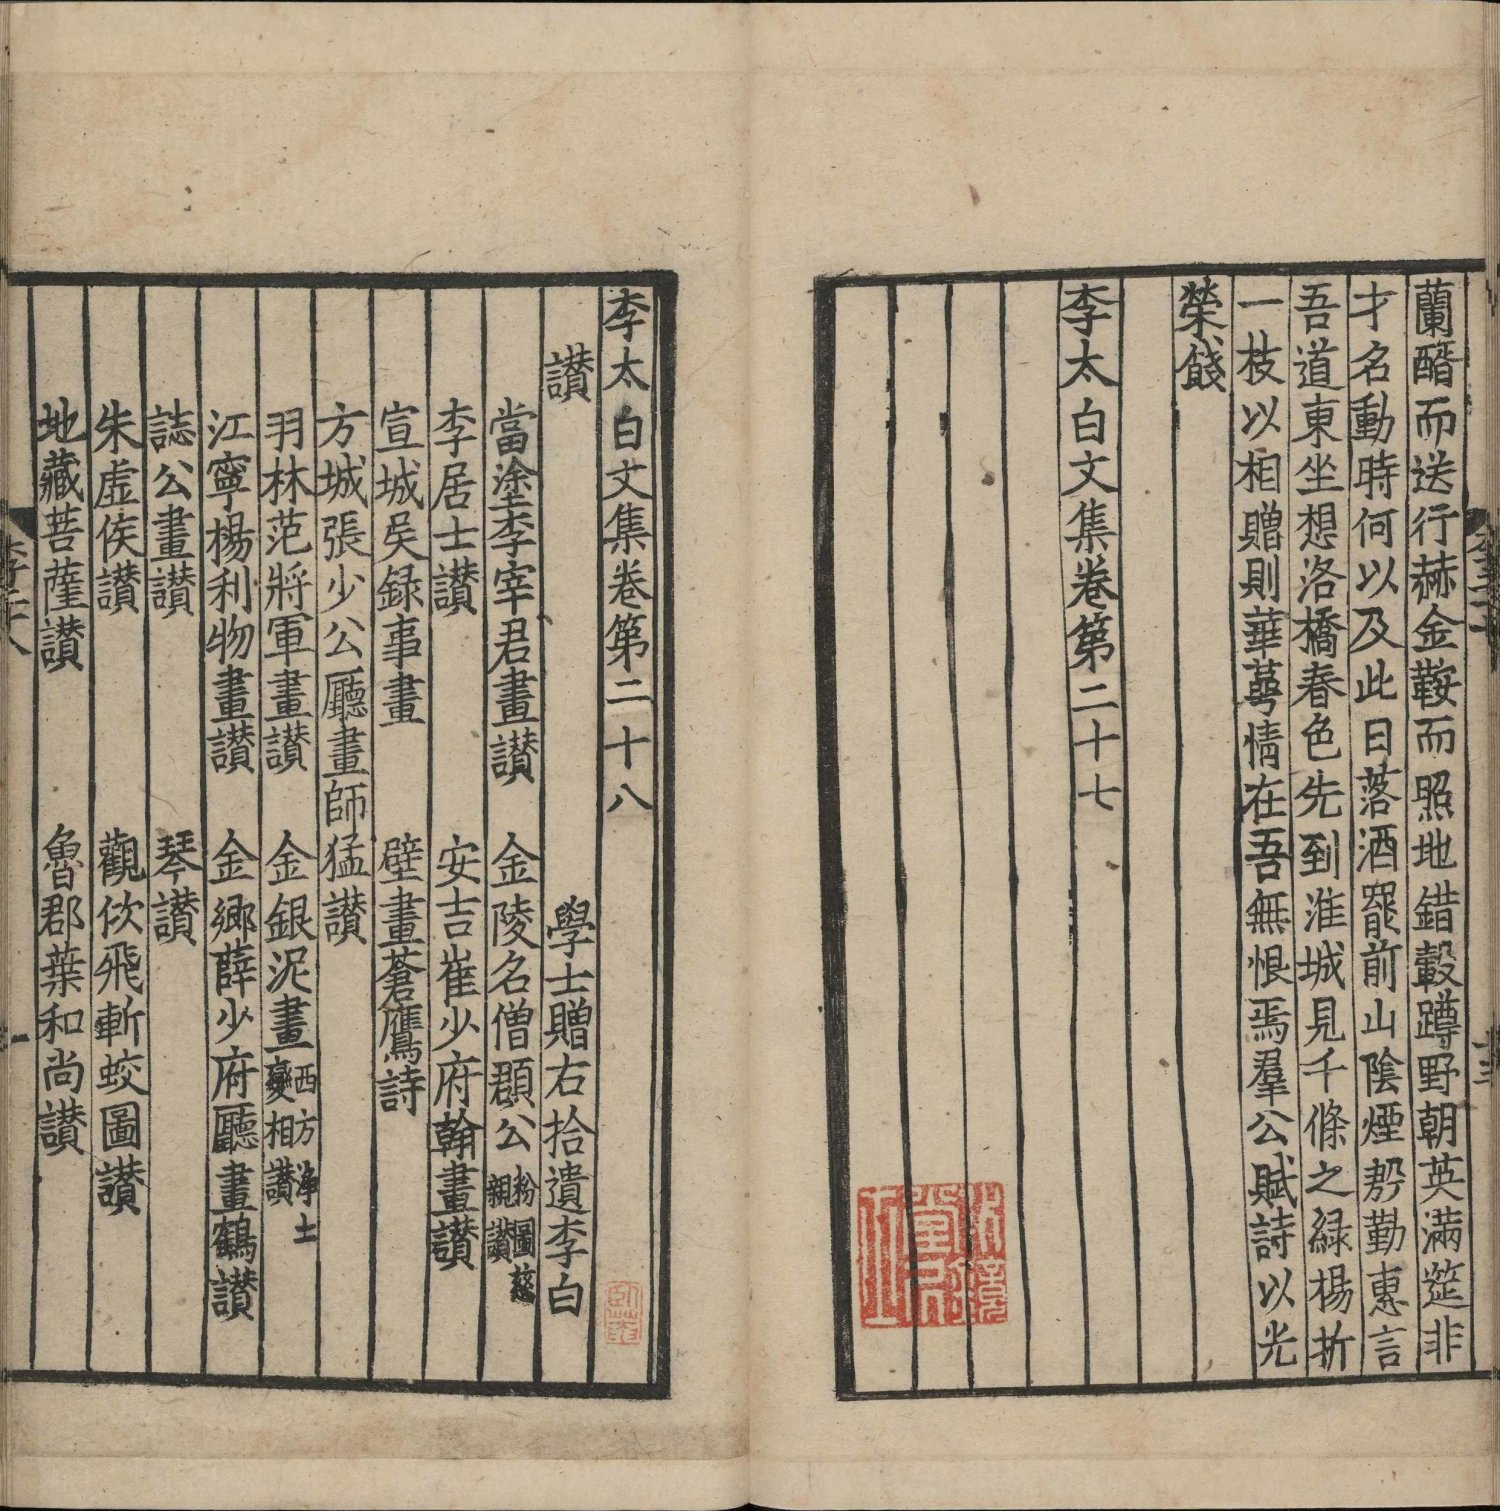 蘭醑而送行赫金鞍而照地錯轂蹲野朝英滿筵非
才名動時何以及此日落酒罷前山陰煙慇勤惠言
吾道東坐想洛橋春色先到淮城見千條之綠楊折
一枝以相贈則華萼情在吾無恨焉羣公賦詩以光
榮餞
李太白文集卷第二十七
李太白文集卷第二十八
讃
學士贈右拾遺李白
當塗李宰君畫讃 金陵名僧頵公粉圖慈親讃
李居士讃 安吉崔少府翰畫讃
宣城吳録事畫 壁畫蒼鷹詩
方城張少公廳畫師猛讃
羽林范將軍畫讃 金銀泥畫西方淨土變相讃
江寧楊利物畫讃 金鄉薛少府廳畫鶴讃
誌公畫讃 琴讃
朱虛侯讃 觀佽飛斬蛟圖讃
地藏菩薩讃 魯郡葉和尚讃
李二十八
一